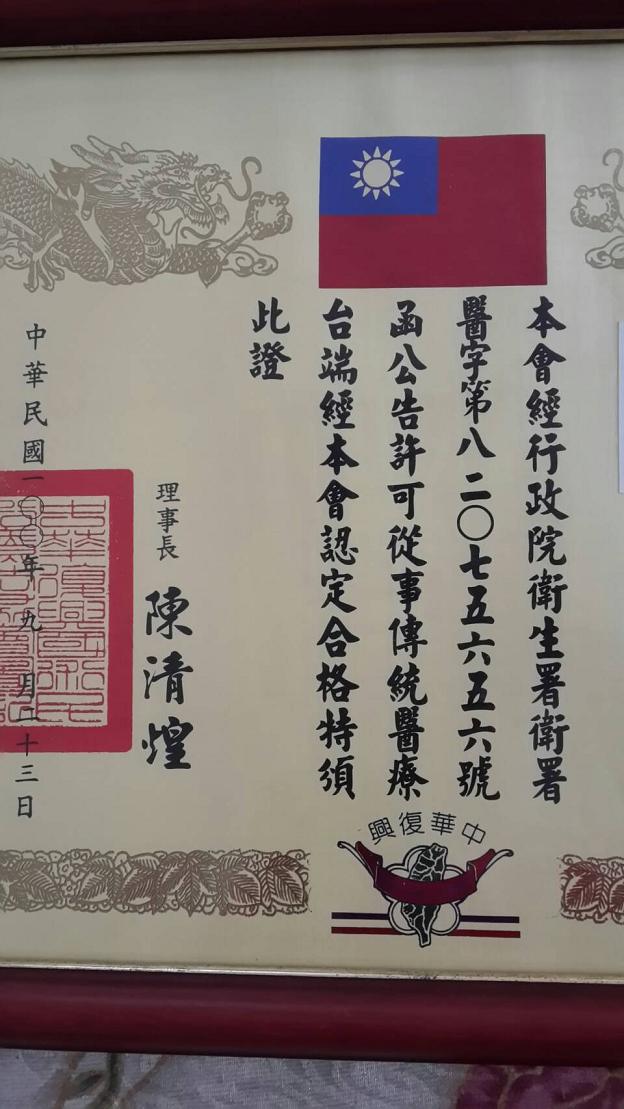 本會經行政院衛生署衛署
醫字第八二〇七五六五六號
函公告許可從事傳統醫療
台端經本會認定合格特須
此證
理事長
陳清煌
中華民國一〇〇年九月二十三日
中華復興